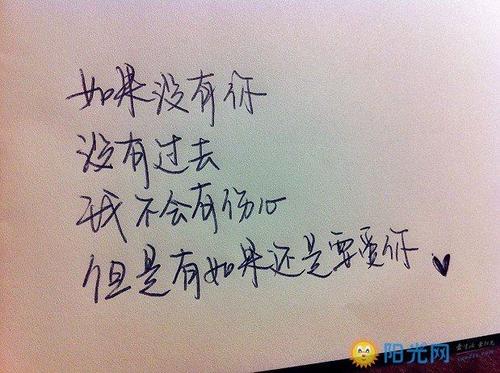 如果没有你
没有过去
我不会有伤心
但是有如果还是要爱你
阳光网